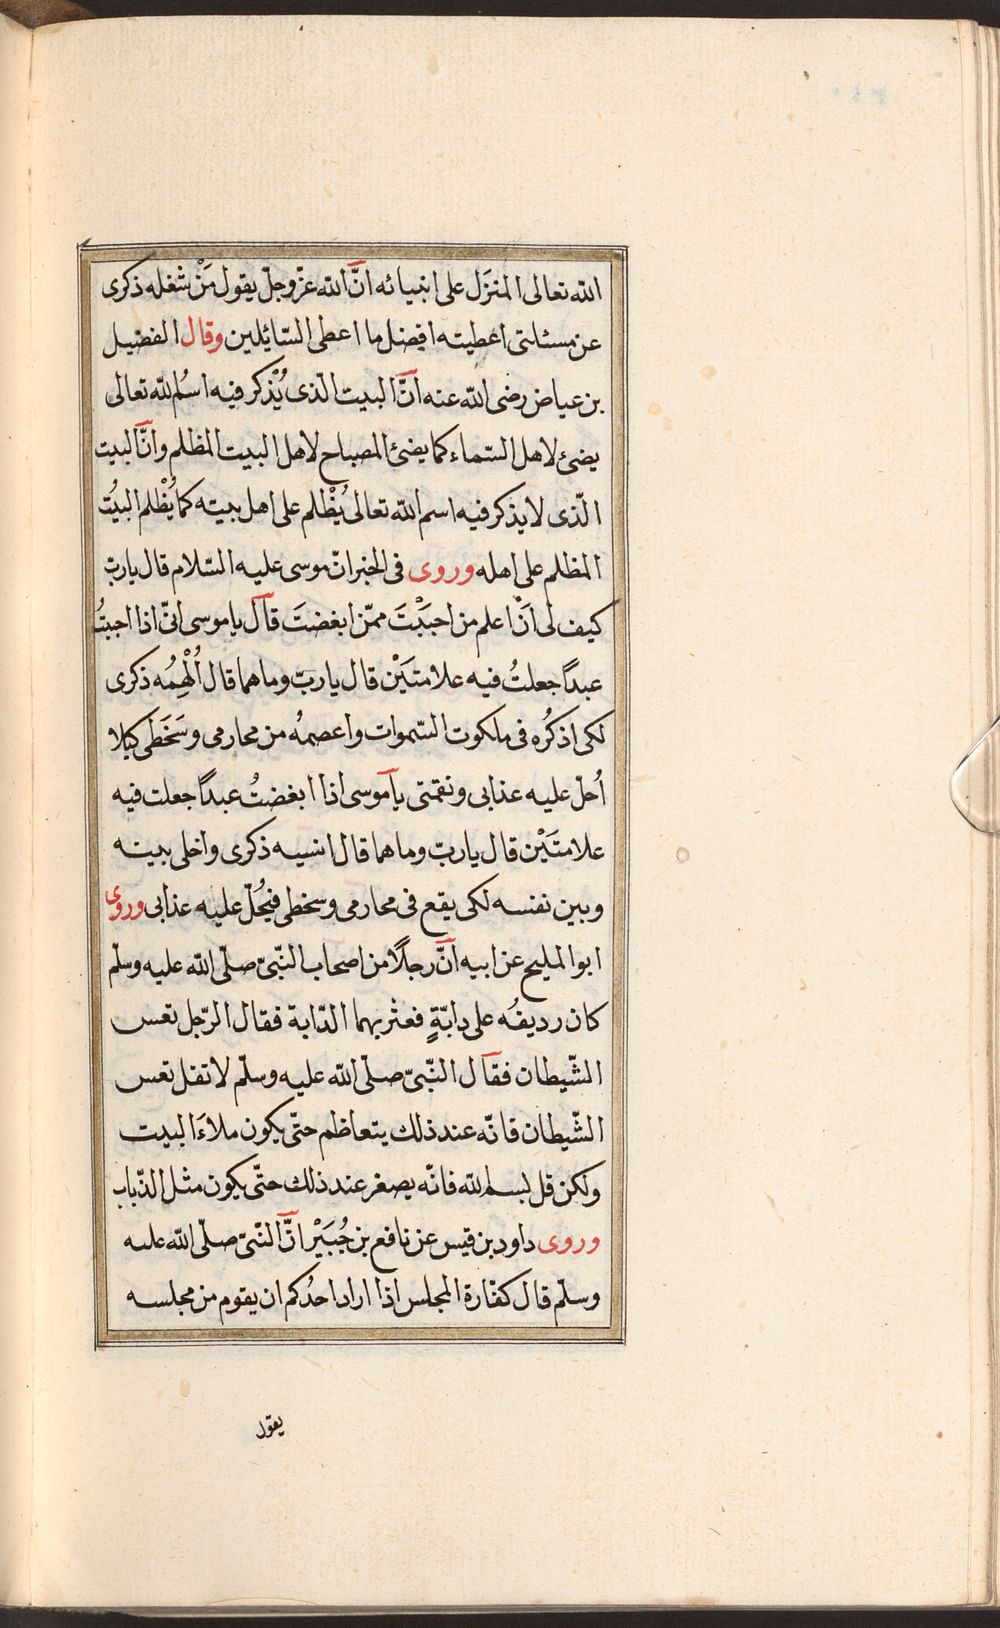 الله تعالى المنزَل على انبيائه انّ الله عزّ وجلّ يقول مَنْ شغله ذكرى
عن مسئلتى اعطيته افضل ما اعطى السّائلين وقال الفضيل
بن عياض رضى الله عنه انّ البيت الّذى يُذْكر فيه اسْمُ الله تعالى
يضئ لاهل السّماء كما يضئ المصباح لاهل البيت المظلم وانّ البيت
الّذى لا يذكر فيه اسم الله تعالى يُظْلم على اهل بيته كما يُظْلم البيُت
المظلم على اهله وروى فى الخبر انّ موسى عليه السّلام قال يا ربّ
كيف لى اَنْ اعلم من احبَبْتَ ممّن ابغضتَ قال يا موسى انّى اذا احببتُ
عبداً جعلتُ فيه علامتَيْن قال يا ربّ وما هما قال اُلْهِمُه ذكرى
لكى اذكُره فى ملكوت السّموات واعصمُه من محارمى وسَخَطى كيلا
اُحلّ عليه عذابى ونقمتى يا موسى اذا ابغضتُ عبداً جعلت فيه
علامتَيْن قال يا ربّ وما هما قال انسيه ذكرى واخلى بينه
وبين نفسه لكى يقع فى محارمى وسخطى فيحُلّ عليه عذابى وروى
ابو المليح عن ابيه انّ رجلًا من اصحاب النّبىّ صلّى الله عليه وسلّم
كان رديفُه على دابّةٍ فعثر بهما الدّابة فقال الرّجل تعس
الشّيطان فقال النّبىّ صلّى الله عليه وسلّم لا تقل تعس
الشّيطان فانّه عند ذلك يتعاظم حتّى يكون ملاءَ البيت
ولكن قل بسم الله فانّه يصغر عند ذلك حتّى يكون مثل الذّباب
وروى داود بن قيس عن نافع بن جُبَيْر انّ النّبىّ صلّى الله عليه
وسلّم قال كفّارة المجلس اذا اراد احدُكم ان يقوم من مجلسه
يقول